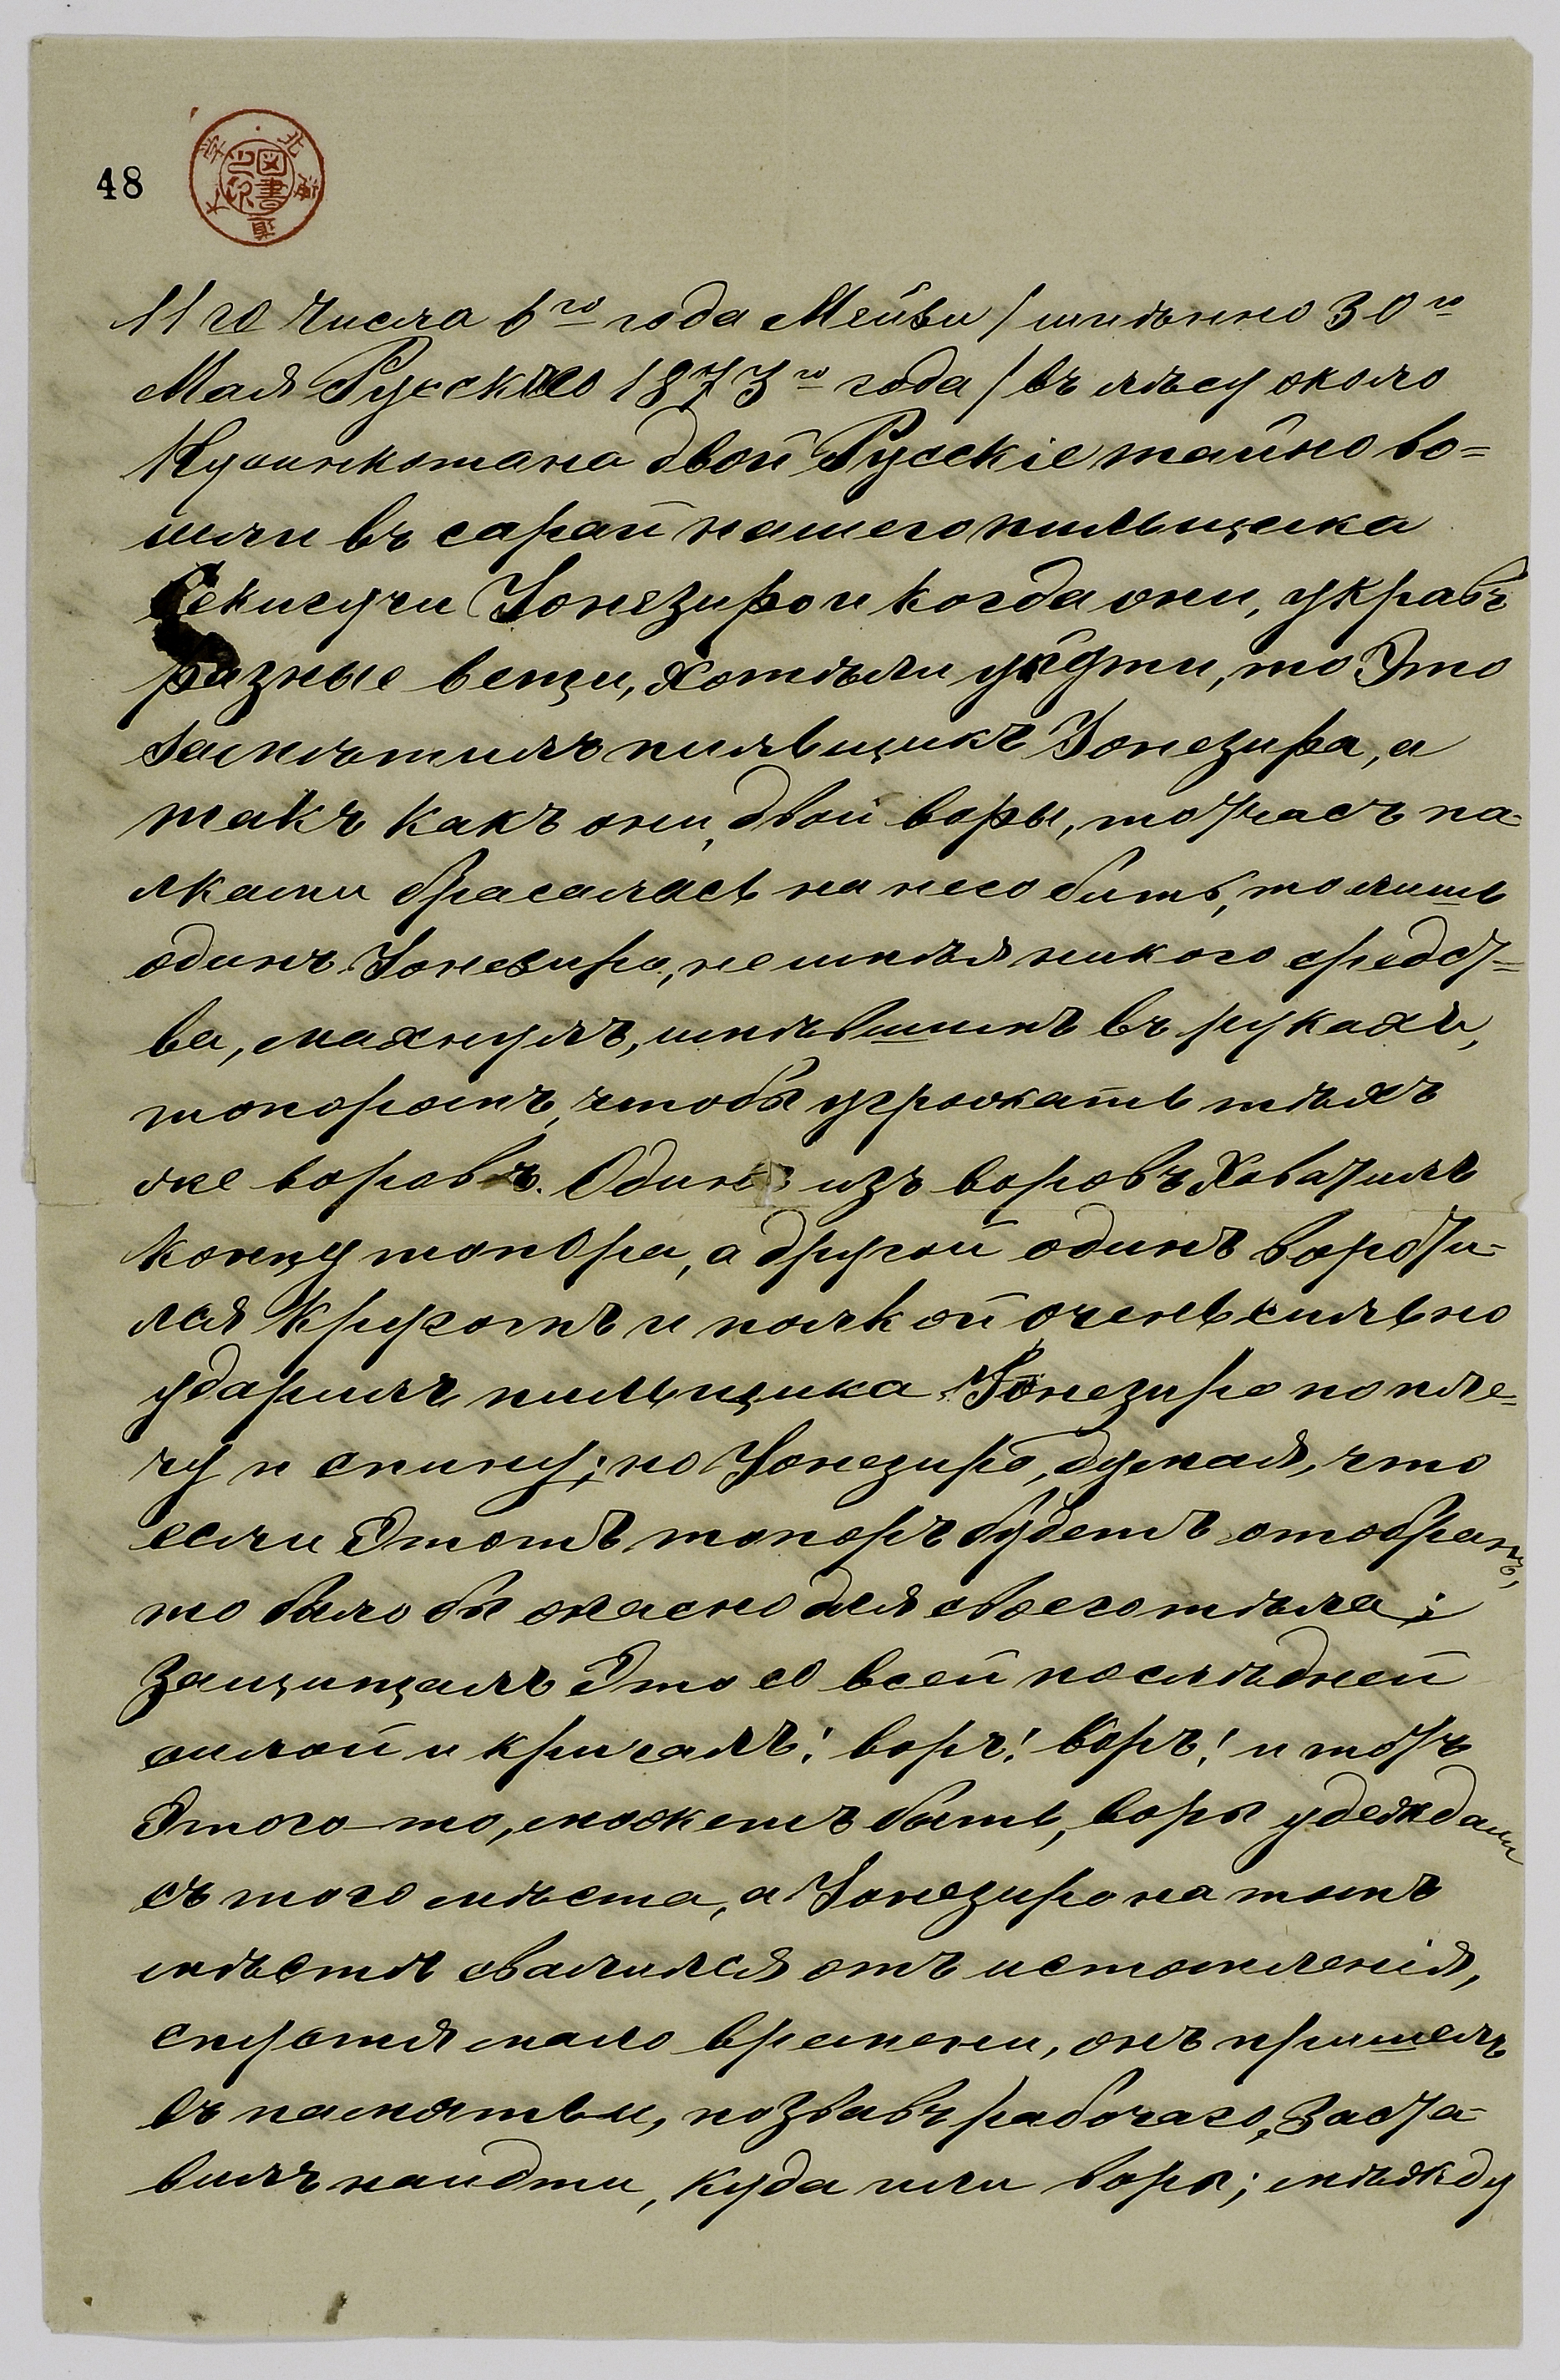 48
11го числа 6го года Мейзи / именно 30го
Мая Русского 1873го года / въ лѣсу около
Кусинкотана двои Русскіе тайно во=
шли въ сарай нашего пильщика
Секигучи Іонезиро и когда они, укравъ
разные вещи, хотѣли уйдти, то Это
замѣтилъ пильщикъ Іонезира, а
такъ какъ они, двои воры, тотчасъ па-
лками брасались на него бить, то лишь
одинъ Іонезиро, не имѣя никого средст=
ва, махнулъ, имѣвшимъ въ рукахъ,
топоромъ, чтобы угрожать тѣхъ
же воровъ. Одинъ изъ воровъ хватилъ
концу топора, а другой одинъ воротил-
лся кругомъ и палкой очень сильно
ударилъ пильщика Іонезиро по пле=
чу и спину; но Іонезиро, думая, что
если Этотъ топоръ будетъ отобранъ,
то было бы опасно для своего тѣла;
защищалъ Это со всей послѣдней
силой и кричалъ! воръ! воръ! и отъ
Этого-то, можетъ быть, воры убеждали
съ того мѣста, а Іонезиро на томъ
мѣстѣ свалился отъ истомленія,
спустя мало времени, онъ пришелъ
въ памятьи, позвавъ рабочаго, заста-
вилъ найдти, куда шли воры; мѣжду